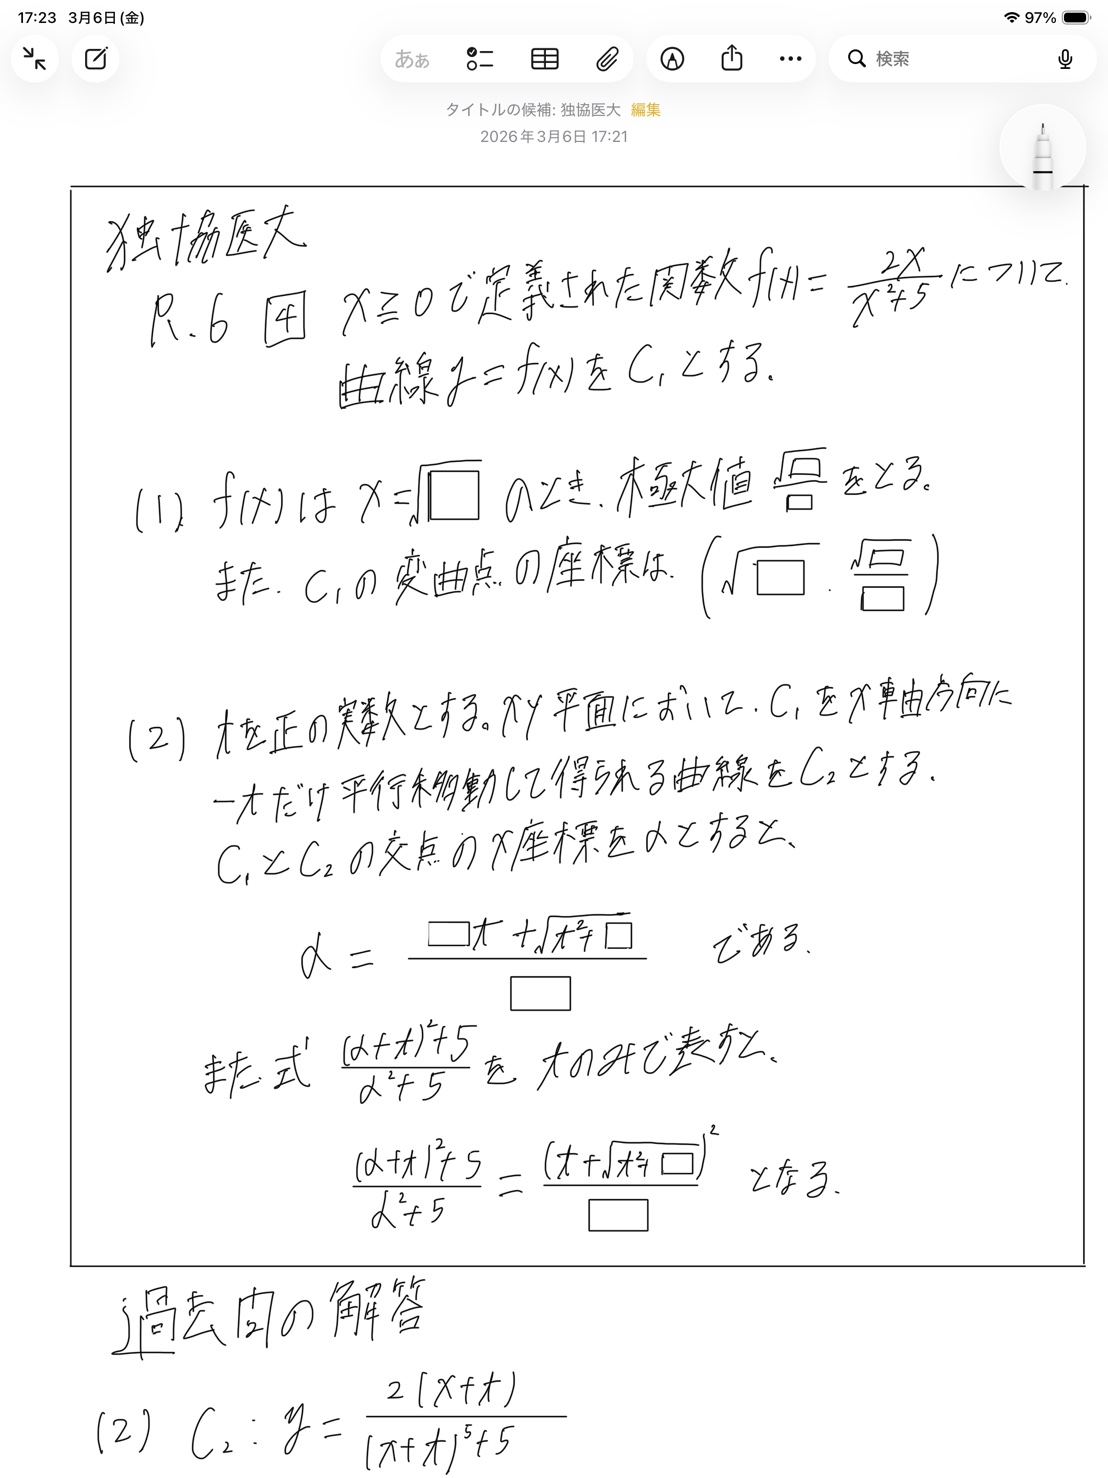 17:23 3月6日(金)
97%
あぁ
検索
タイトルの候補: 独協医大 編集
2026年3月6日 17:21
独協医大
R.6 4 x≧0で定義された関数f(x)=2x/(x²+5)について
曲線y=f(x)をC₁とする。
(1) f(x)は x=√□ のとき、極大値 √□/□ をとる。
また、C₁の変曲点の座標は、(√□, √□/□)
(2) tを正の実数とする。xy平面において、C₁をx軸方向に
-tだけ平行移動して得られる曲線をC₂とする。
C₁とC₂の交点のx座標をαとすると、
α = (□t+√(t²+□))/□ である。
また、式 ((α+t)²+5)/(α²+5) を tのみで表すと、
((α+t)²+5)/(α²+5) = (t+√(t²+□))²/□ となる。
過去問の解答
(2) C₂: y = 2(x+t)/((x+t)⁵+5)